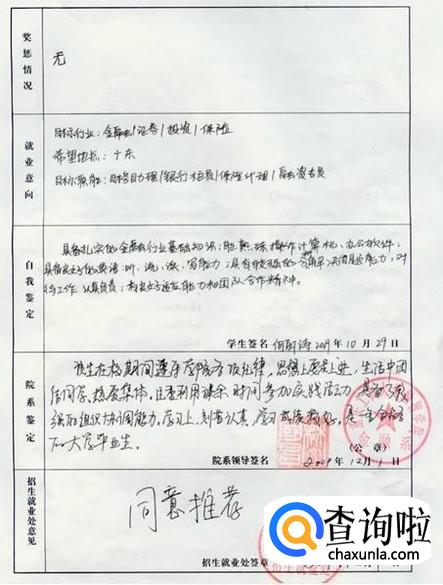 奖惩情况
无
就业意向
目标行业：金融/证券/投资/保险
希望地点：广东
目标职能：财务助理/银行柜员/保险代理/融资专员
自我鉴定
具备扎实的金融行业基础知识；能熟练操作计算机、办公软件；
具备良好的英语：听、说、读、写能力；具有较强的 解决问题能力，对
待工作 认真负责；有良好适应能力和团队合作精神。
学生签名 2019年10月29日
院系鉴定
该生在校期间遵守学院各项纪律，思想上要求上进，生活中团
结同学，热爱集体，注重利用课余时间参加实践活动，具备了较
强的组织协调能力，学习上，刻苦认真，学习成绩 ，是一名合格
大学毕业生。
（公章）
院系领导签名 2009年12月1日
招生就业处意见
同意推荐
招生就业处签章
查询啦
chaxunla.com